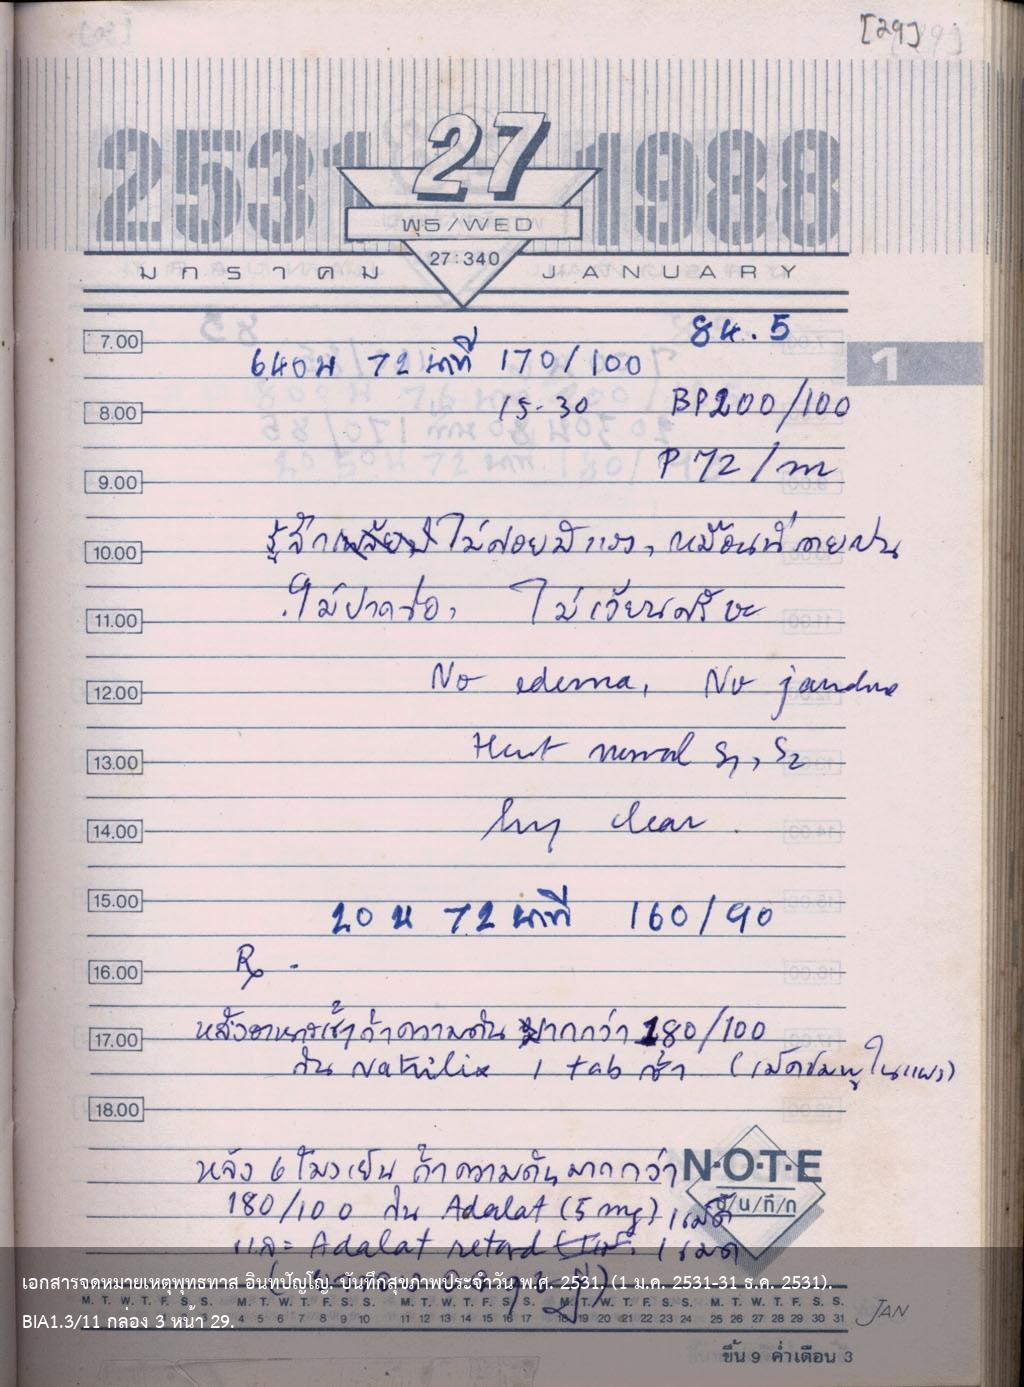 [29]
2531 27 1988
พุธ/WED
27:340
มกราคม JANUARY
84.5
7.00
640น 72 นาที 170/100
1
15.30 BP 200/100
8.00
P 72/m
9.00
10.00
รู้สึก ไม่ค่อยมีแรง, เหมือนที่เคยเป็น
ไม่ปวดข้อ, ไม่เวียนศรีษะ
11.00
No edema, No jaundice
12.00
Heart normal S1, S2
13.00
lung clear
14.00
15.00
20 น 72 นาที 160/90
Rx -
16.00
หลังอาหารเช้า ถ้าความดัน มากกว่า 180/100
17.00
กิน Natrilix 1 tab เช้า (เม็ดชมพูในแผง)
18.00
หลัง 6 โมงเย็น ถ้าความดันมากกว่า
N·O·T·E
บันทึก
180/100 กิน Adalat (5 mg) 1 เม็ด
และ Adalat retard 1 เม็ด
เอกสารจดหมายเหตุพุทธทาส อินทปัญโญ. บันทึกสุขภาพประจำวัน พ.ศ. 2531, (1 ม.ค. 2531-31 ธ.ค. 2531).
BIA1.3/11 กล่อง 3 หน้า 29.
M. T. W. T. F. S. S. M. T. W. T. F. S. S. M. T. W. T. F. S. S. M. T. W. T. F. S. S. M. T. W. T. F. S. S.
4 5 6 7 8 9 10 11 12 13 14 15 16 17 18 19 20 21 22 23 24 25 26 27 28 29 30 31 JAN
ขึ้น 9 ค่ำเดือน 3